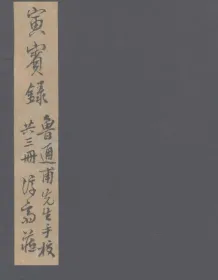 寅賓録
魯通甫先生手校
共三冊